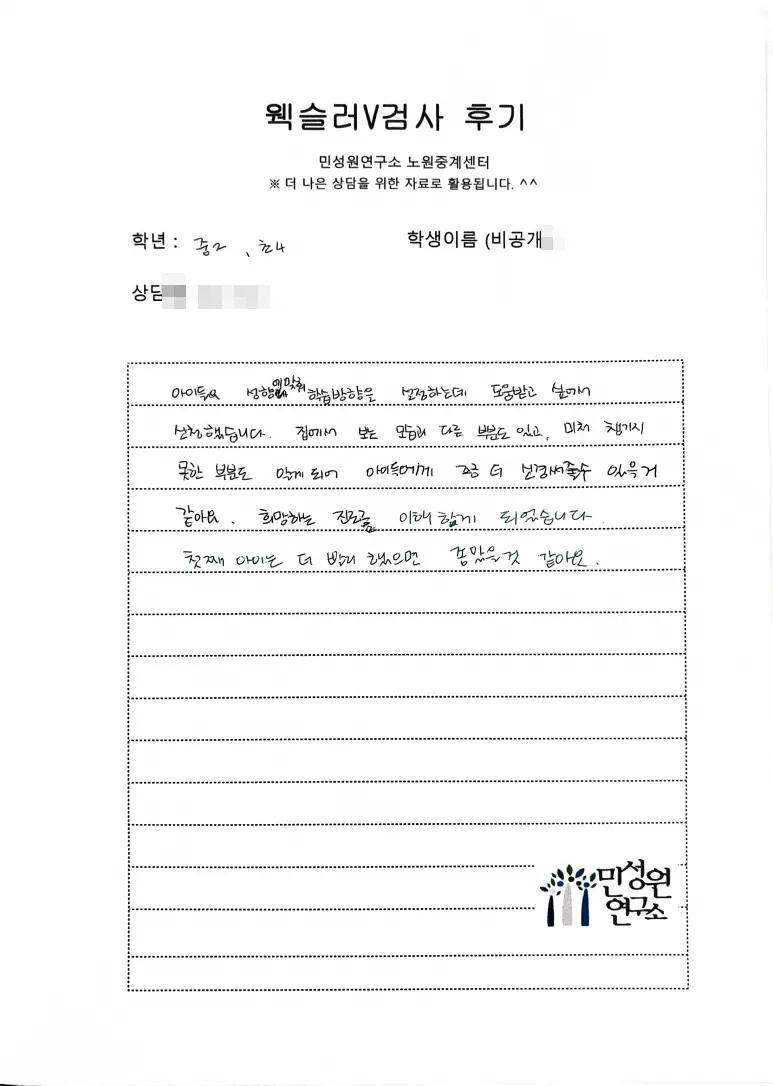 웩슬러V검사 후기
민성원연구소 노원중계센터
※ 더 나은 상담을 위한 자료로 활용됩니다. ^^
학년 : 중2 , 초4 학생이름 (비공개
상담
아이들의 성향에 맞춰 학습방향을 설정하는데 도움받고 싶어서
신청했습니다. 집에서 보는 모습과 다른 부분도 있고, 미처 챙기지
못한 부분도 알게 되어 아이들에게 조금 더 신경써줄수 있을거
같아요. 희망하는 진로를 이해할게 되었습니다.
첫째 아이는 더 빨리 했으면 좋았을것 같아요.
민성원
연구소